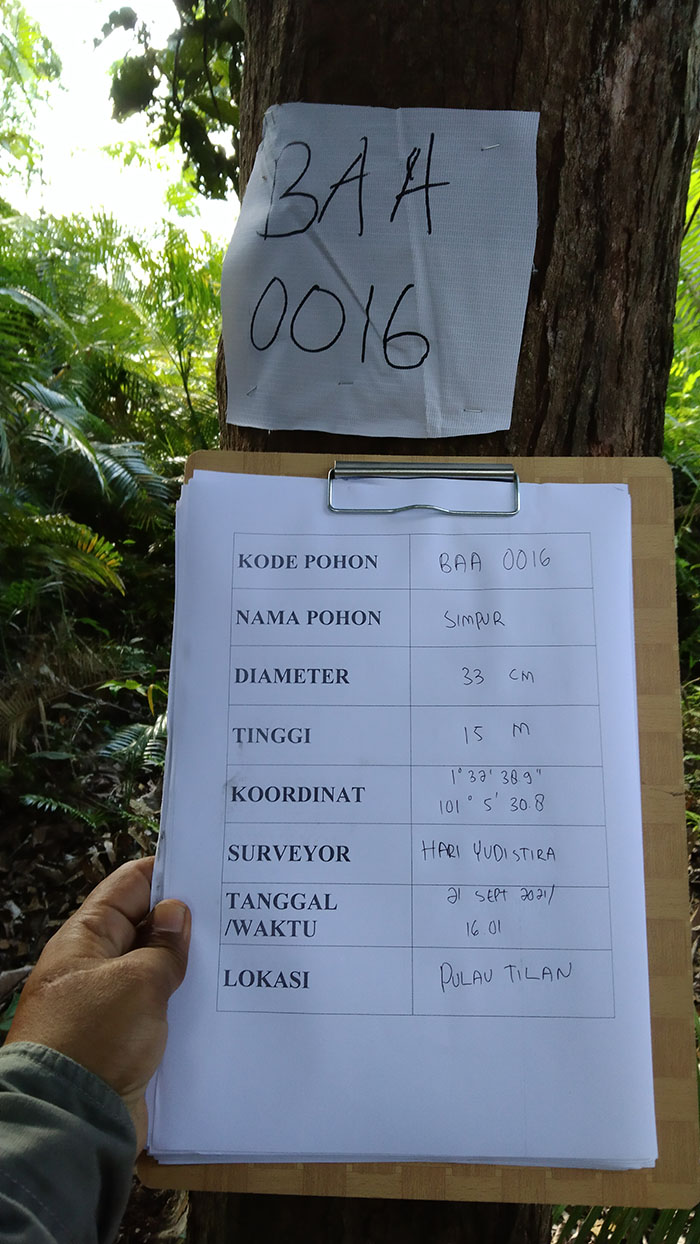 BAA
0016
KODE POHON BAA 0016
NAMA POHON SIMPUR
DIAMETER 33 CM
TINGGI 15 M
KOORDINAT 1° 37' 38.9"
101° 5' 30.8
SURVEYOR HARI YUDISTIRA
TANGGAL 21 SEPT 2021/
/WAKTU 16.01
LOKASI PULAU TILAN